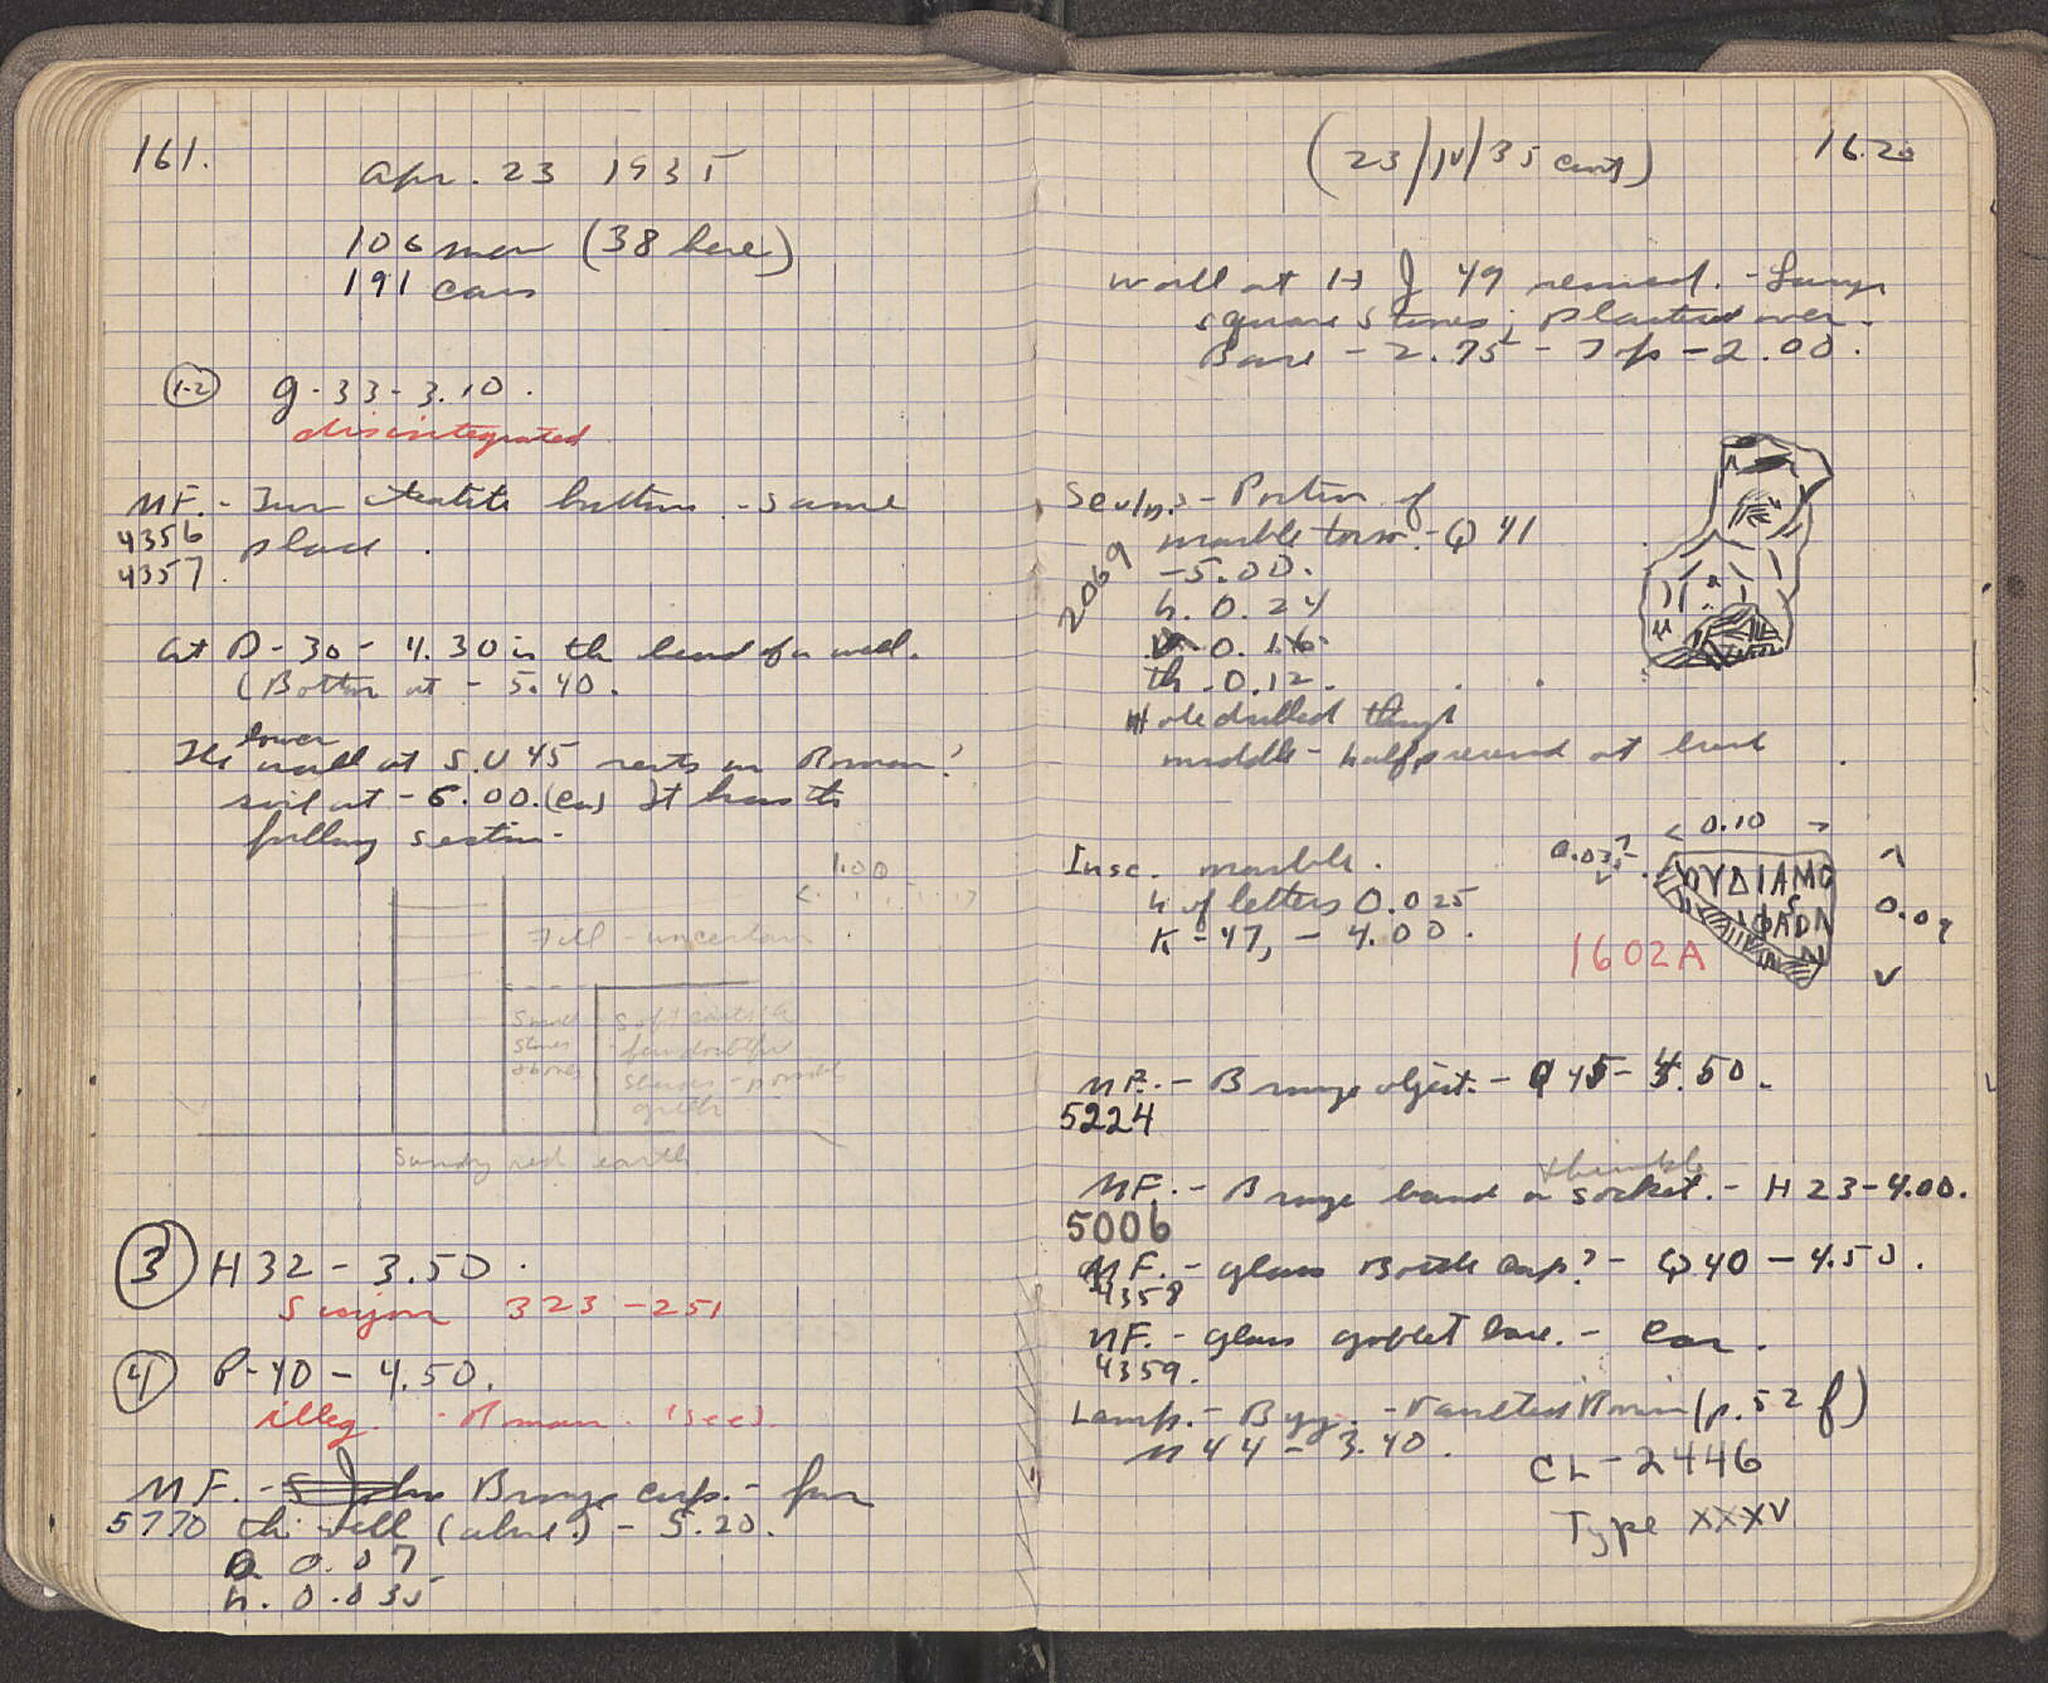 161.
Apr. 23 1935
106 men (38 here)
191 cars
1-2 g-33-3.10.
disintegrated
MF. - Two steatite buttons - same
4356 place.
4357.
At D-30 - 4.30 is the head of a well.
(Bottom at - 5.40.
lower
The wall at S.U 45 rests on Roman?
soil at - 6.00. (ca) It has the
following section -
1.00
Fill - uncertain
Small stones & bones
Soft earth & few doubtful sherds - possible greek
Sandy red earth
3 H32 - 3.50.
Sicyon 323-251
4 P-40 - 4.50.
illeg. - Roman.
MF. - Bronze cup. - from
5770 the well (above) - 5.20.
D. 0.07
h. 0.035
(23/IV/35 cont)
162
Wall at H J 49 removed. - Large
square stones; plastered over.
Base - 2.75 - Top - 2.00.
Sculp. - Portion of
2069
marble torso. - Q 41
- 5.00.
h. 0.24
w. 0.16
th. 0.12.
Hole drilled through
middle - half preserved at back
Insc. marble.
h of letters 0.025
K-47, - 4.00.
< 0.10 >
0.035
ΟΥΔΙΑΜΟ
0.09
1602A
MF. - Bronze object. - Q 45 - 4.50.
5224
thimble
MF. - Bronze band or socket. - H 23-4.00.
5006
MF. - glass Bottle cap? - Q 40 - 4.50.
4358
MF. - glass goblet base. - ean.
4359.
Lamp. - Byz. - (p. 52 f)
N 44 - 3.40.
CL - 2446
Type XXXV